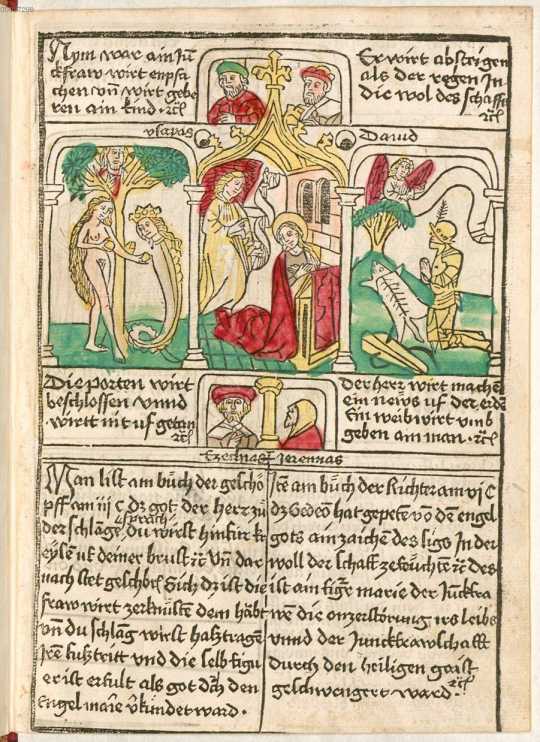 Nym war ain Jū
ckfraw wirt enpfa
chen vn̄ wirt gebe
ren ain kind · ꝛcꝭ
Er wirt absteigen
als der regen In
die wol des schaffs
ꝛcꝭ
ysayas
Dauid
Die porten wirt
beschlossen vnnd
wirtt nit uf getan
ꝛcꝭ
der herr wirt machen
ein news uf der erde
Ein weib wirt vmb
geben ain man · ꝛcꝭ
Jeremias
Man list am bůch der geschö
pff am iii c dz got der herr zů
der schlange sprach du wirst hinfür kr
eysen uf deiner brust ꝛc vn̄ dar
nach stet geschrbē Sich dz ist die
fraw wirt zerknüsten dem hābt
vn̄ du schlāg wirst hasztragē
Irē fusztritt vnd die selb figu
er ist erfult als got dch den
Engel maīe v̄kündet ward ·
Itē am bůch der Richter am vj c
dz Gedeō hat gepetē vō dē engel
gots ain zaichē des sigs In der
woll der schaff ꝛc des
ist ain figur marie der Junckfra
wē die on zerstörung irs leibs
vnnd der Junckfrawschafft
durch den heiligen gaist
geschwengert ward ·
ꝛcꝭ